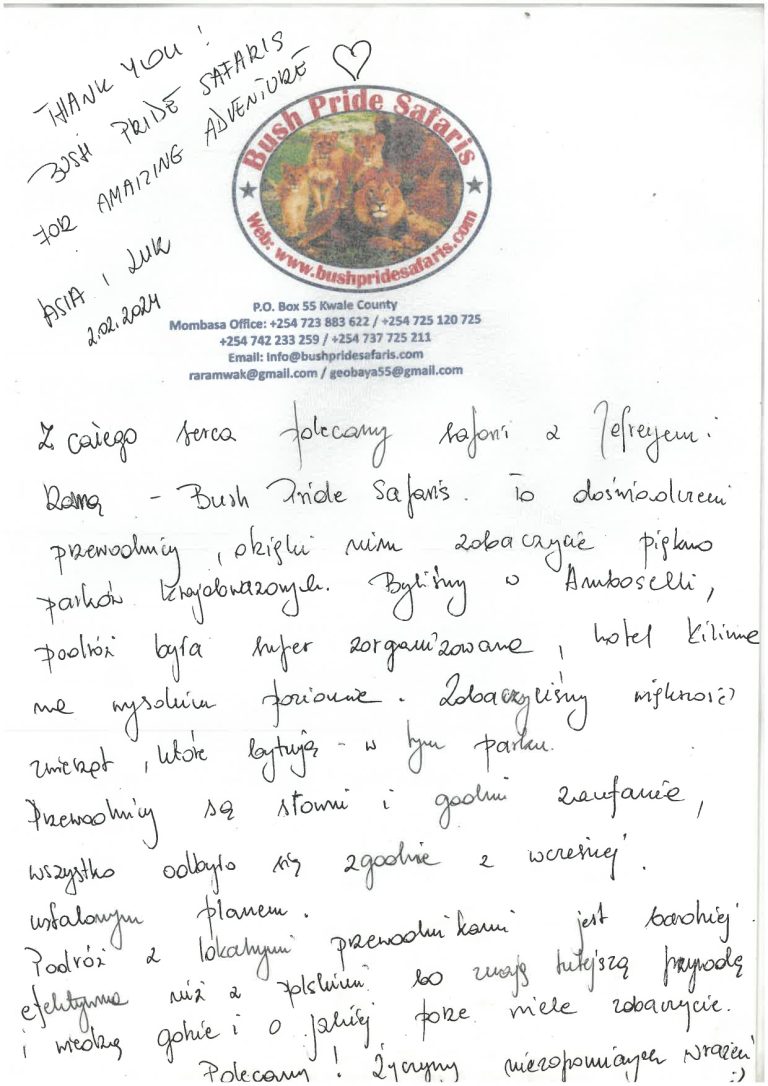 THANK YOU!
BUSH PRIDE SAFARIS
FOR AMAIZING ADVENTURE ♡
ASIA i LUK
2.02.2024
Bush Pride Safaris
Web: www.bushpridesafaris.com
P.O. Box 55 Kwale County
Mombasa Office: +254 723 883 622 / +254 725 120 725
+254 742 233 259 / +254 737 725 211
Email: info@bushpridesafaris.com
raramwak@gmail.com / geobaya55@gmail.com
Z całego serca polecamy safari z Jefreyem i
Ramą - Bush Pride Safaris. To doświadczeni
przewodnicy, dzięki nim zobaczycie piękno
parków krajobrazowych. Byliśmy w Amboselli,
podróż była super zorganizowana, hotel Kilima
na wysokim poziomie. Zobaczyliśmy większość
zwierząt, które bytują - w tym parku.
Przewodnicy są słowni i godni zaufania,
wszystko odbyło się zgodnie z wcześniej
ustalonym planem.
Podróż z lokalnymi przewodnikami jest bardziej
efektywna niż z polskimi bo znają tutejszą przyrodę
i wiedzą gdzie i o jakiej porze wiele zobaczycie.
Polecamy! Życzymy niezapomnianych wrażeń
:)